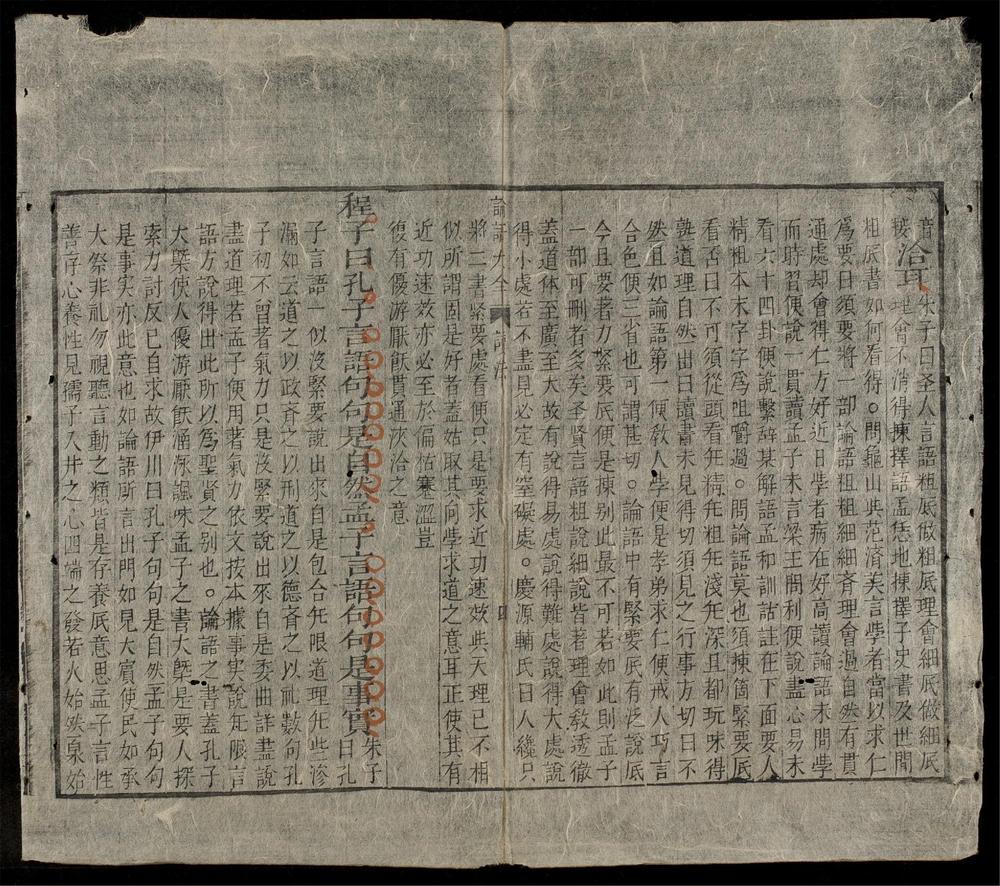 音接
洽耳
朱子曰圣人言語粗底做粗底理會細底做細底
理會不消得揀擇語孟恁地揀擇子史書及世間
粗底書如何看得。問龜山與范済美言學者當以求仁
爲要曰須要將一部論語粗粗細細斉理會過自然有貫
通處却會得仁方好近日學者病在好高讀論語未問學
而時習便說一貫讀孟子未言梁王問利便說盡心易未
看六十四卦便說繫辞某解語孟和訓詁註在下面要人
精粗本末字字爲咀嚼過。問論語莫也須揀箇緊要底
看否曰不可須從頭看无精无粗无淺无深且都玩味得
熟道理自然出曰讀書未見得切須見之行事方切曰不
然且如論語第一便教人學便是孝弟求仁便戒人巧言
令色便三省也可謂甚切。論語中有緊要底有泛說底
今且要着力緊要底便是揀别此最不可若如此則孟子
一部可刪者多矣圣賢言語粗說細說皆著理會教透徹
蓋道体至廣至大故有說得易處說得難處說得大處說
得小處若不盡見必定有窒礙處。慶源輔氏曰人纔只
論語大全 讀法 四
將二書緊要處看便只是要求近功速效与天理已不相
似所謂固是好者蓋姑取其向學求道之意耳正使其有
近功速效亦必至於偏枯蹇澀豈
復有優游厭飫貫通浹洽之意
程子曰孔子言語句句是自然孟子言語句句是事實
朱子
曰孔
子言語一似沒緊要說出來自是包合无限道理无些滲
漏如云道之以政斉之以刑道之以德斉之以礼數句孔
子初不曾着氣力只是沒緊要說出來自是委曲詳盡說
盡道理若孟子便用著氣力依文按本據事実說无限言
語方說得出此所以爲聖賢之别也。論語之書蓋孔子
大槩使人優游厭飫涵泳諷味孟子之書大槩是要人探
索力討反已自求故伊川曰孔子句句是自然孟子句句
是事実亦此意也如論語所言出門如見大賓使民如承
大祭非礼勿視聽言動之類皆是存養底意思孟子言性
善存心養性見孺子入井之心四端之發若火始然泉始